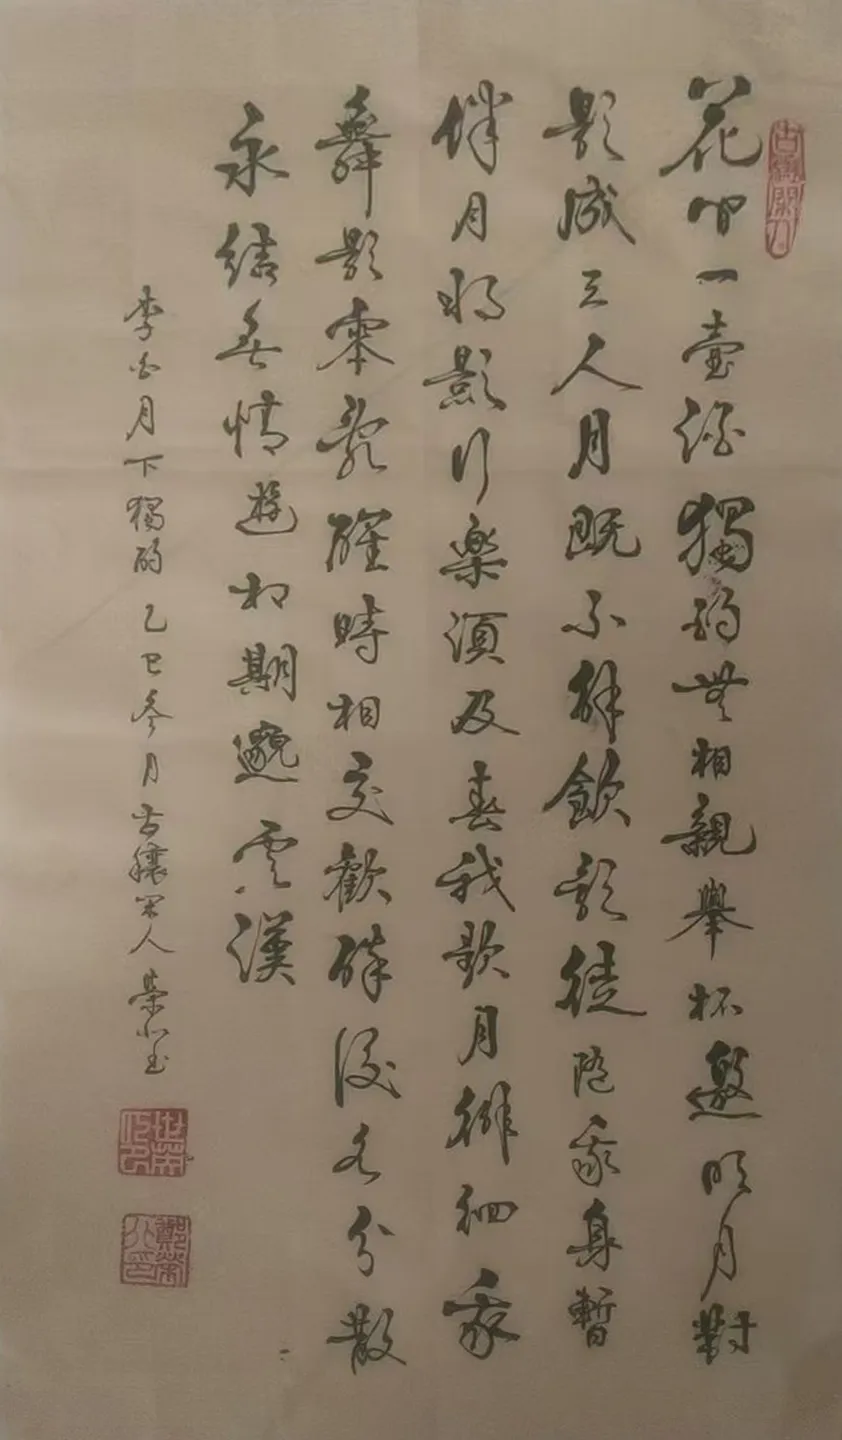 花間一壺酒獨酌無相親舉杯邀明月對
影成三人月既不解飲影徒隨我身暫
伴月將影行樂須及春我歌月徘徊我
舞影零亂醒時相交歡醉後各分散
永結無情遊相期邈雲漢
李白月下獨酌 乙巳冬月古穰閑人榮小玉